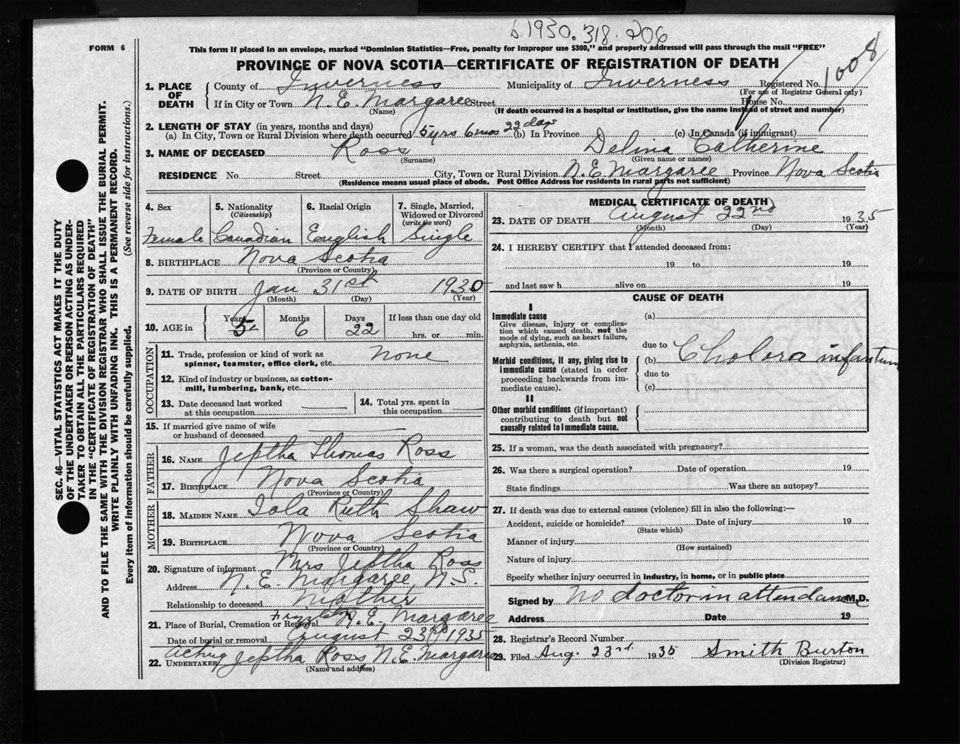 b.1930.318.206
FORM 6
This form if placed in an envelope, marked "Dominion Statistics—Free, penalty for improper use $300," and properly addressed will pass through the mail "FREE"
PROVINCE OF NOVA SCOTIA—CERTIFICATE OF REGISTRATION OF DEATH
1008
1. PLACE OF DEATH
County of Inverness Municipality of Inverness Registered No.
(For use of Registrar General only)
If in City or Town N. E. Margaree Street House No.
(Name) (If death occurred in a hospital or institution, give the name instead of street and number)
2. LENGTH OF STAY (in years, months and days)
(a) In City, Town or Rural Division where death occurred 5 yrs 6 mos 22 days (b) In Province (c) In Canada (if immigrant)
3. NAME OF DECEASED Ross Delina Catherine
(Surname) (Given name or names)
RESIDENCE No. Street City, Town or Rural Division N. E. Margaree Province Nova Scotia
(Residence means usual place of abode. Post Office Address for residents in rural parts not sufficient)
4. Sex 5. Nationality (Citizenship) 6. Racial Origin 7. Single, Married, Widowed or Divorced (write the word)
Female Canadian English Single
8. BIRTHPLACE Nova Scotia
(Province or Country)
9. DATE OF BIRTH Jan 31st 1930
(Month) (Day) (Year)
10. AGE in Years Months Days If less than one day old
5 6 22 hrs. or min.
OCCUPATION
11. Trade, profession or kind of work as spinner, teamster, office clerk, etc. None
12. Kind of industry or business, as cotton-mill, lumbering, bank, etc.
13. Date deceased last worked at this occupation
14. Total yrs. spent in this occupation
15. If married give name of wife or husband of deceased
FATHER
16. NAME Jeptha Thomas Ross
17. Birthplace Nova Scotia
(Province or Country)
MOTHER
18. MAIDEN NAME Iola Ruth Shaw
19. BIRTHPLACE Nova Scotia
(Province or Country)
20. Signature of informant Mrs Jeptha Ross
Address N. E. Margaree N.S.
Relationship to deceased Mother
21. Place of Burial, Cremation or Removal N. E. Margaree
Date of burial or removal August 23rd 1935
Acting
22. UNDERTAKER Jeptha Ross, N.E. Margaree
(Name and address)
MEDICAL CERTIFICATE OF DEATH
23. DATE OF DEATH August 22nd 1935
(Month) (Day) (Year)
24. I HEREBY CERTIFY that I attended deceased from:
19 to 19
and last saw h alive on 19
CAUSE OF DEATH
I
Immediate cause
Give disease, injury or complication which caused death, not the mode of dying, such as heart failure, asphyxia, asthenia, etc.
(a)
due to
Morbid conditions, if any, giving rise to immediate cause (stated in order proceeding backwards from immediate cause).
(b) Cholera infantum
due to
(c)
II
Other morbid conditions (if important) contributing to death but not causally related to immediate cause.
25. If a woman, was the death associated with pregnancy?
26. Was there a surgical operation? Date of operation 19
State findings Was there an autopsy?
27. If death was due to external causes (violence) fill in also the following:—
Accident, suicide or homicide? Date of injury 19
(State which)
Manner of injury
(How sustained)
Nature of injury
Specify whether injury occurred in industry, in home, or in public place
Signed by No doctor in attendance M.D.
Address Date 19
28. Registrar's Record Number
29. Filed Aug. 23rd 1935 Smith Burton
(Division Registrar)
SEC. 46—VITAL STATISTICS ACT MAKES IT THE DUTY
OF THE UNDERTAKER OR PERSON ACTING AS UNDER-
TAKER TO OBTAIN ALL THE PARTICULARS REQUIRED
IN THE "CERTIFICATE OF REGISTRATION OF DEATH"
AND TO FILE THE SAME WITH THE DIVISION REGISTRAR WHO SHALL ISSUE THE BURIAL PERMIT.
WRITE PLAINLY WITH UNFADING INK. THIS IS A PERMANENT RECORD.
Every item of information should be carefully supplied. (See reverse side for instructions.)